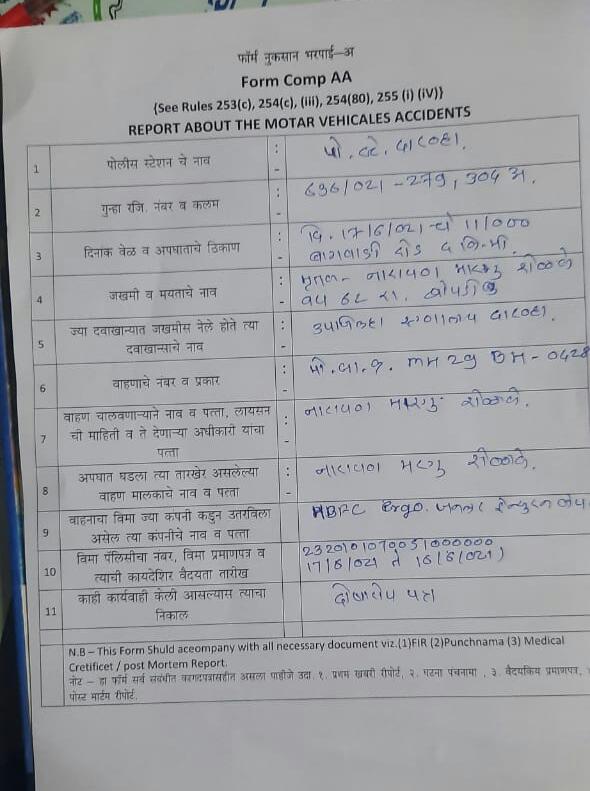 फॉर्म नुकसान भरपाई–अ
Form Comp AA
{See Rules 253(c), 254(c), (iii), 254(80), 255 (i) (iV)}
REPORT ABOUT THE MOTAR VEHICALES ACCIDENTS
1 पोलीस स्टेशन चे नाव : - पो. स्टे. दारव्हा.
2 गुन्हा रजि. नंबर व कलम : - 636/021 - 279, 304 अ.
3 दिनांक वेळ व अपघाताचे ठिकाण : - दि. 17/6/021 चे 11/000
रोड
4 जखमी व मयताचे नाव : - मृतक - नारायण
वय 68 रा.
5 ज्या दवाखान्यात जखमीस नेले होते त्या
दवाखान्साचे नाव : - उपजिल्हा रुग्णालय दारव्हा.
6 वाहणाचे नंबर व प्रकार : - मो. सा. क्र. MH 29 BH - 0428
7 वाहण चालवणाऱ्याने नाव व पत्ता, लायसन
ची माहिती व ते देणाऱ्या अधीकारी यांचा
पत्ता : - नारायण
8 अपघात घडला त्या तारखेर असलेल्या
वाहण मालकाचे नाव व पत्ता : - नारायण
9 वाहनाचा विमा ज्या कंपनी कडुन उतरविला
असेल त्या कंपनीचे नाव व पत्ता HDFC Ergo. जनरल
10 विमा पॅलिसीचा नंबर, विमा प्रमाणपत्र व
त्याची कायदेशिर वैदयता तारीख
17/6/021 ते 16/6/021)
11 काही कार्यवाही केली आसल्यास त्याचा
निकाल दोषारोप पत्र
N.B – This Form Shuld aceompany with all necessary document viz.(1)FIR (2)Punchnama (3) Medical
Cretificet / post Mortem Report.
नोट – हा फॉर्म सर्व संबंधीत कागदपत्रासहीत असला पाहीजे उदा. १. प्रथम खबरी रीपोर्ट, २. घटना पंचनामा , ३. वैदयकिय प्रमाणपत्र,
पोस्ट मार्टम रीपोर्ट.